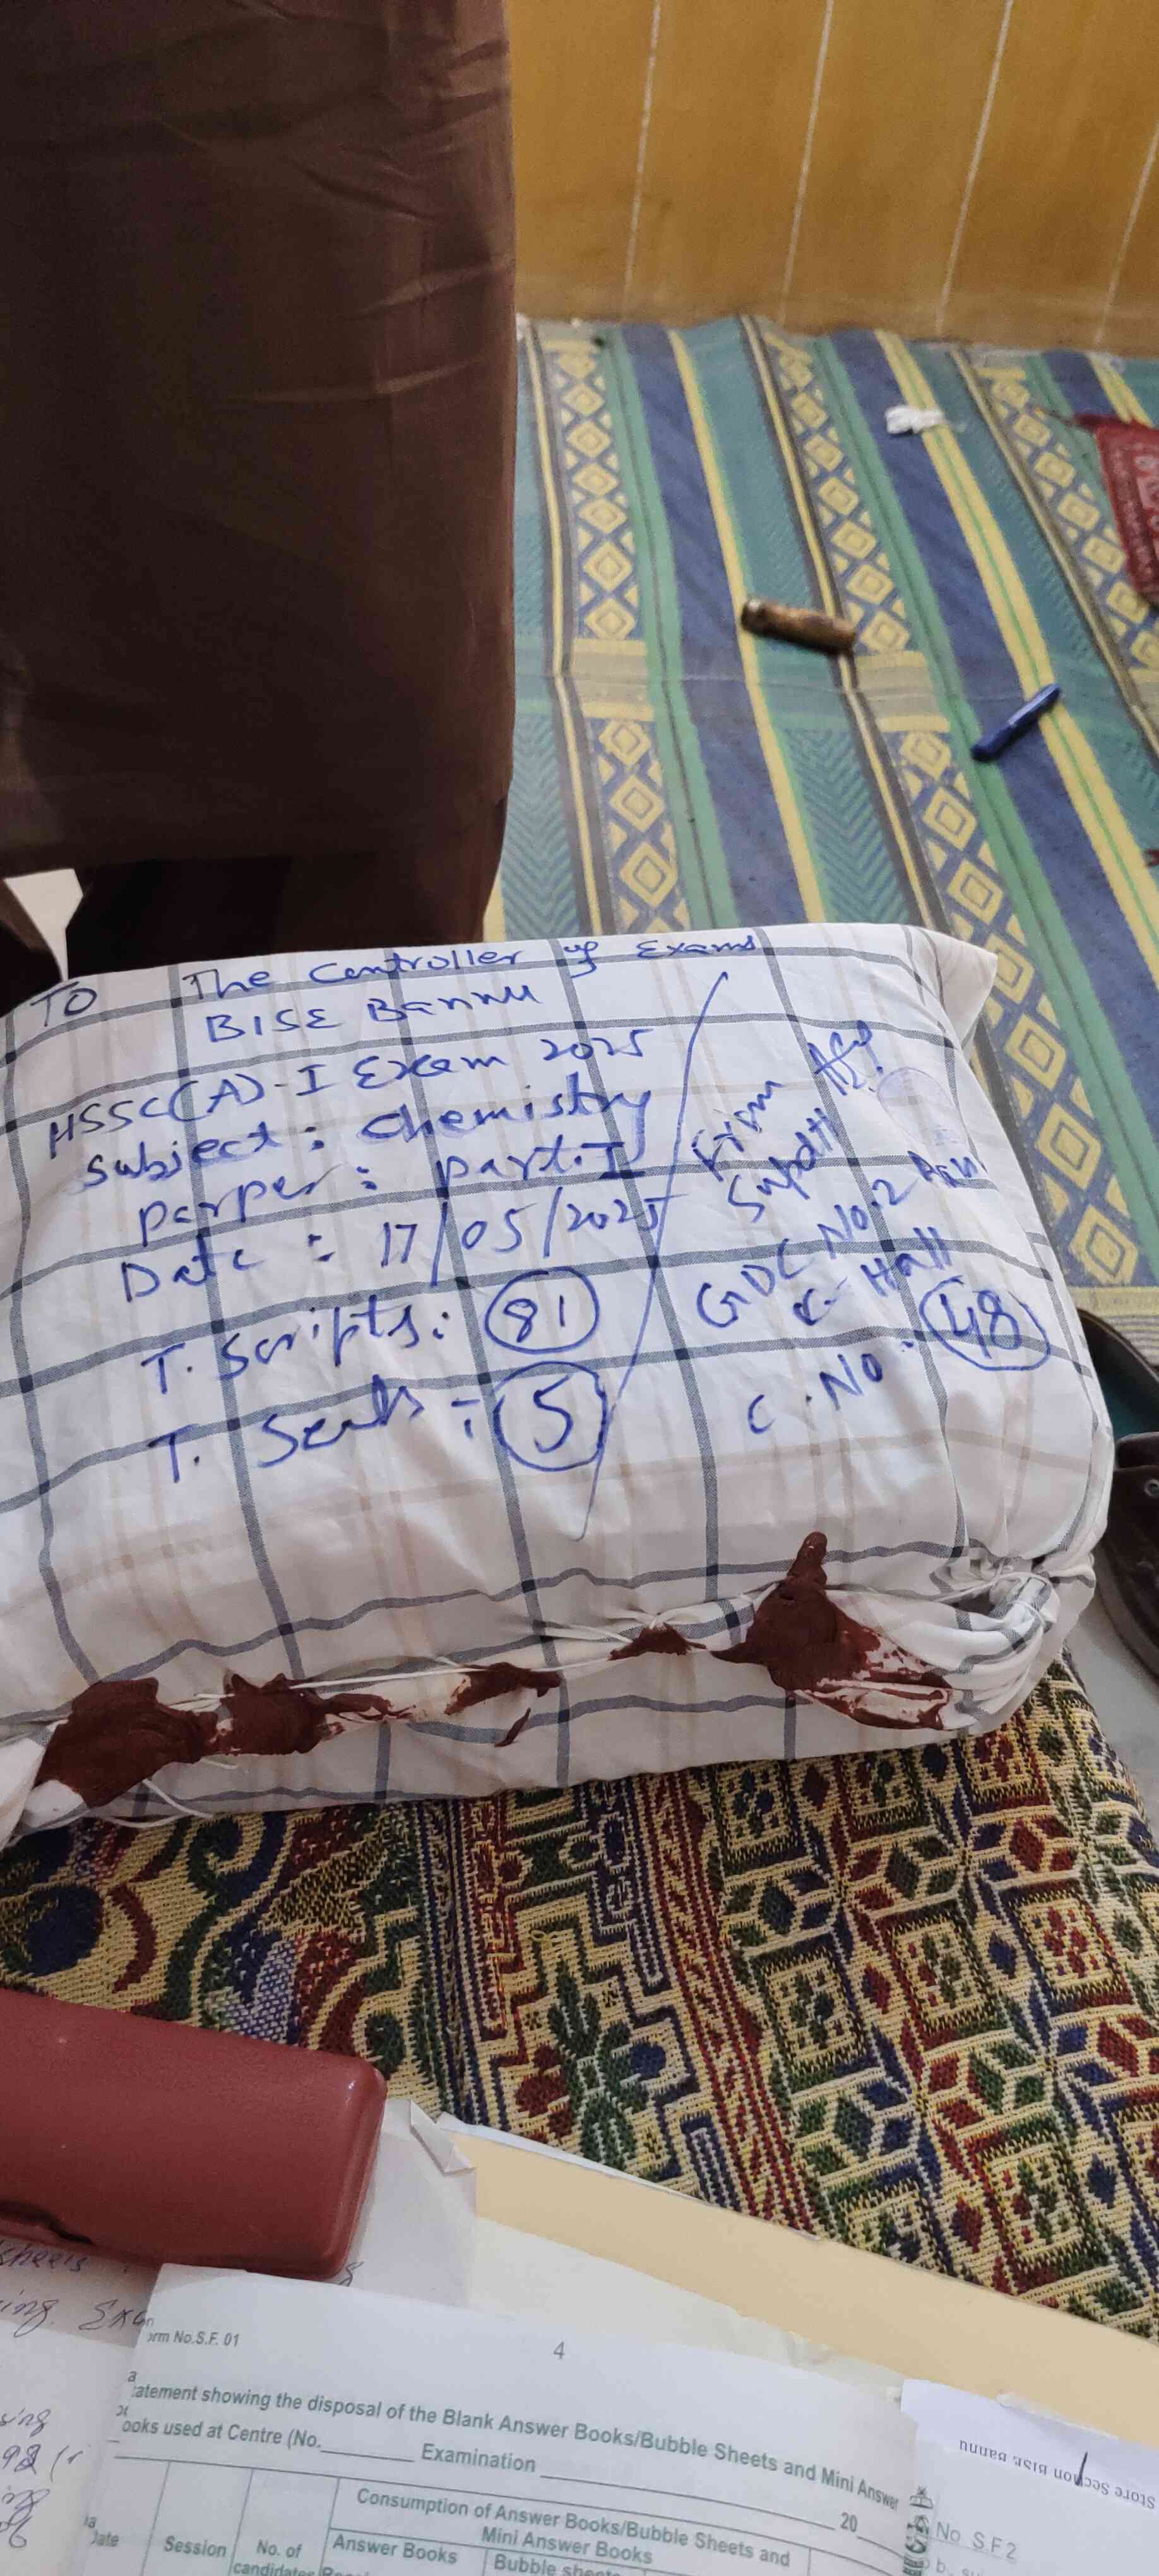 TO The Controller of Exams
BISE Bannu
HSSC(A)-I Exam 2025
Subject: Chemistry
Parper: Part-I
Date: 17/05/2025
T. Scripts: 81
T. Seals: 5
From
Supdtt
GDC No.2
Hall
C.No. 48
sheets
ing. Exa
orm No.S.F. 01
4
atement showing the disposal of the Blank Answer Books/Bubble Sheets and Mini Answer
ooks used at Centre (No. Examination 20
Consumption of Answer Books/Bubble Sheets and
Mini Answer Books
Date
Session
No. of
candidates
Answer Books
Bubble sheets
Store Section BISE Bannu
No. S.F 2